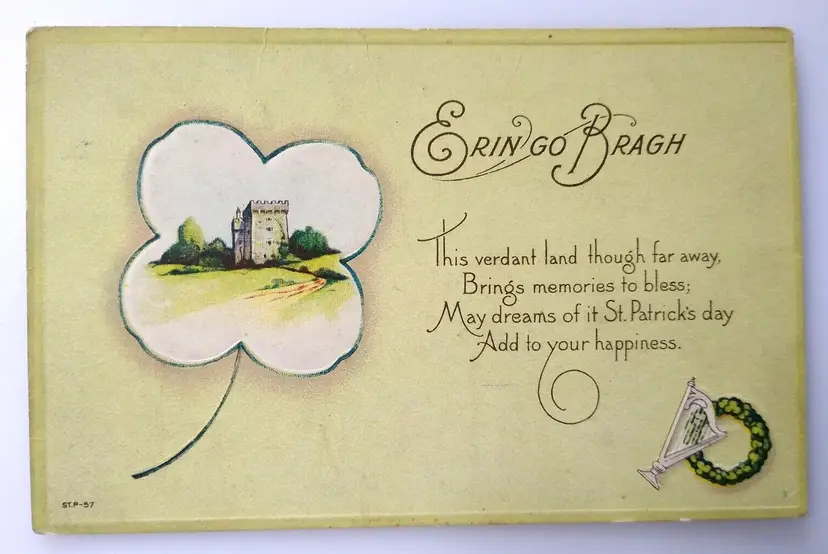 Erin go Bragh
This verdant land though far away,
Brings memories to bless;
May dreams of it St. Patrick's day
Add to your happiness.
ST.P-57